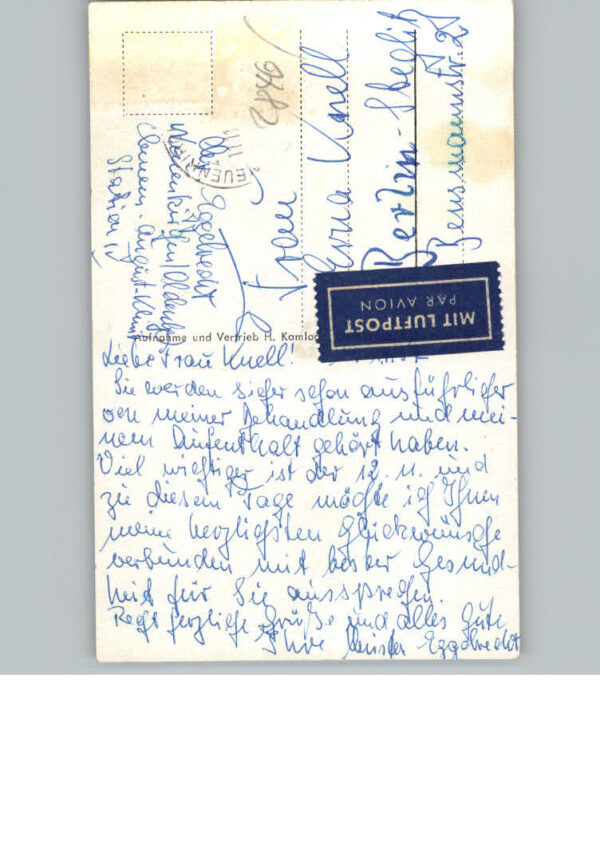 Frau
Erna Knell
Berlin-Steglitz
Bensmannstr. 2
2846
Eggebrecht
Neuenkirchen/Oldenbg
Clemens-August-Klinik
Station
MIT LUFTPOST
PAR AVION
Aufnahme und Vertrieb H. Kamla
Liebe Frau Knell!
Sie werden sicher schon ausführlicher
von meiner Behandlung und mei-
nem Aufenthalt gehört haben.
Viel wichtiger ist der 12. 11. und
zu diesem Tage möchte ich Ihnen
meine herzlichsten Glückwünsche
verbunden mit bester Gesund-
heit für Sie aussprechen.
Recht herzliche Grüße und alles Gute
Ihre Eggebrecht